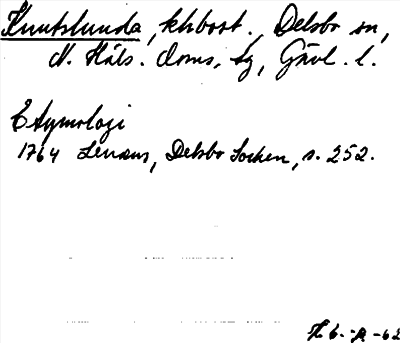 Knutslunda, khbost., Delsbo sn,
N. Häls. doms. sg, Gävl. l.
Etymologi
1764 Lenæus, Delsbo Socken, s. 252.